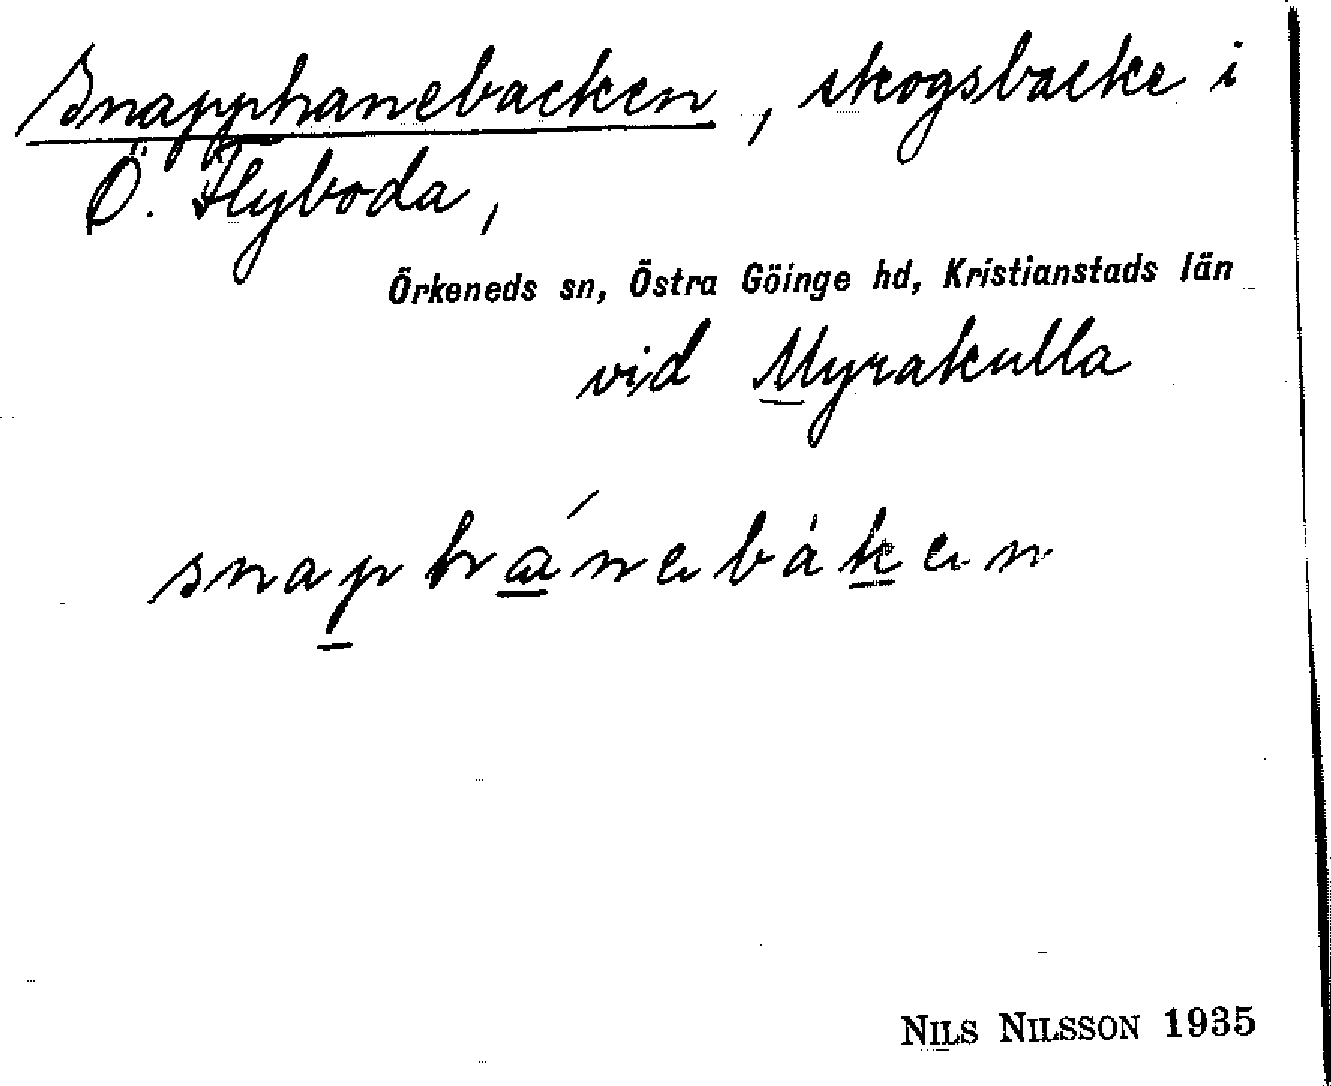 Snapphanebacken, skogsbacke i
Ö. Flyboda,
Örkeneds sn, Östra Göinge hd, Kristianstads län
vid Myrakulla
snaphánebàken
NILS NILSSON 1935